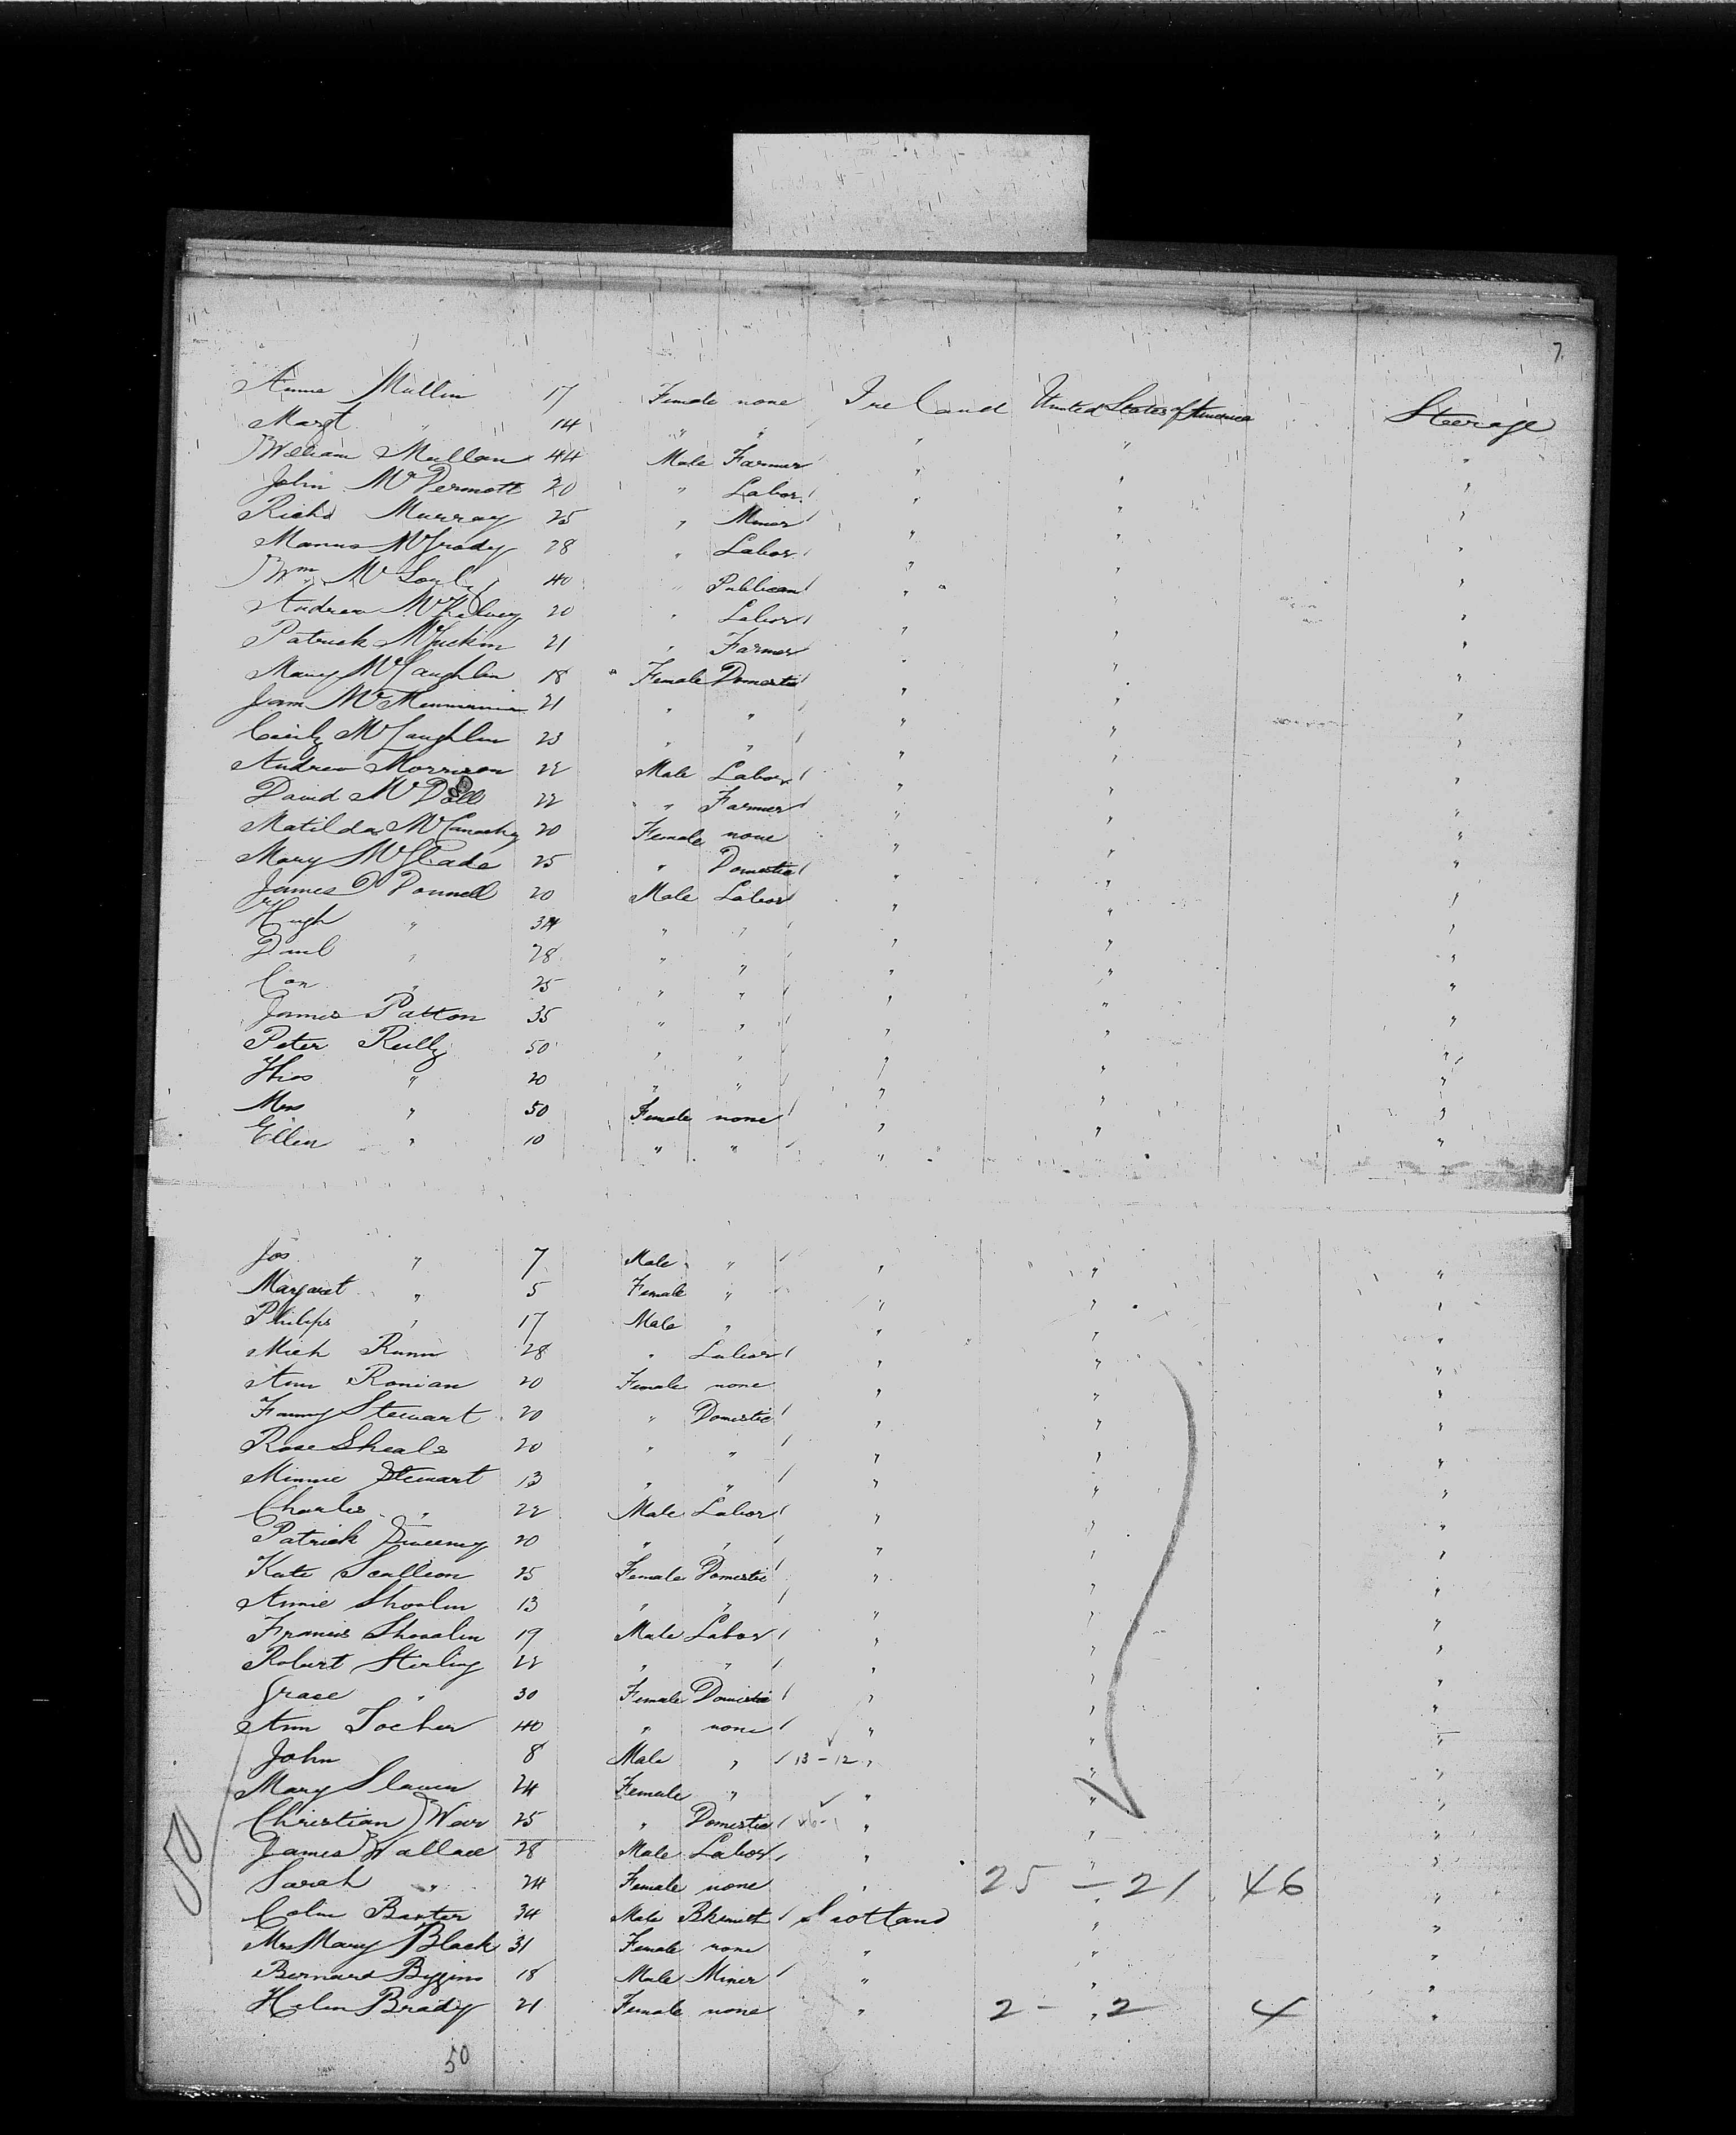 7
Anna Mullin 17 Female none Ireland United States of America Steerage
Margt " 14 " " " " "
William Mullan 44 Male Farmer " " "
John McDermott 20 " Labor " " "
Richd Murray 25 " Miner " " "
Manus McGrady 28 " Labor " " "
Wm 40 " Publican " " "
Andrew McKelvey 20 " Labor " " "
Patrick McGuckin 21 " Farmer " " "
Mary McLaughlin 18 Female Domestic " " "
21 " " " " "
Cecily McLaughlin 23 " " " " "
Andrew Morrison 22 Male Labor " " "
David McDoll 22 " Farmer " " "
Matilda 20 Female none " " "
Mary McGlade 25 " Domestic " " "
James O'Donnell 20 Male Labor " " "
Hugh " 34 " " " " "
Danl " 28 " " " " "
Con " 25 " " " " "
James Patton 35 " " " " "
Peter Reilly 50 " " " " "
Thos " 20 " " " " "
Mrs " 50 Female none " " "
Ellen " 10 " " " " "
Jos " 7 Male " " " "
Margaret " 5 Female " " " "
Philip " 17 Male " " " "
Mich 28 " Labor " " "
Ann Ronian 20 Female none " " "
Fanny Stewart 20 " Domestic " " "
Rose Sheals 20 " " " " "
Minnie Stewart 13 " " " " "
Charles " 22 Male Labor " " "
Patrick Sweeney 20 " " " " "
Kate Scullion 25 Female Domestic " " "
Annie Shovlin 13 " " " " "
Francis Shovalin 19 Male Labor " " "
Robert Sterling 22 " " " " "
Grace " 30 Female Domestic " " "
Ann Tocher 40 " none " " "
John 8 Male " 13 - 12 " " "
Mary Slaven 24 Female " " " "
Christian Weir 25 " Domestic " " "
50
James Wallace 28 Male Labor " " "
Sarah " 24 Female none " 25 — 21 46 "
Colin Baxter 34 Male Bksmith Scotland " "
Mrs Mary Black 31 Female none " " "
Bernard Biggins 18 Male Miner " " "
Helen Brady 21 Female none " 2 - " 2 4 "
50